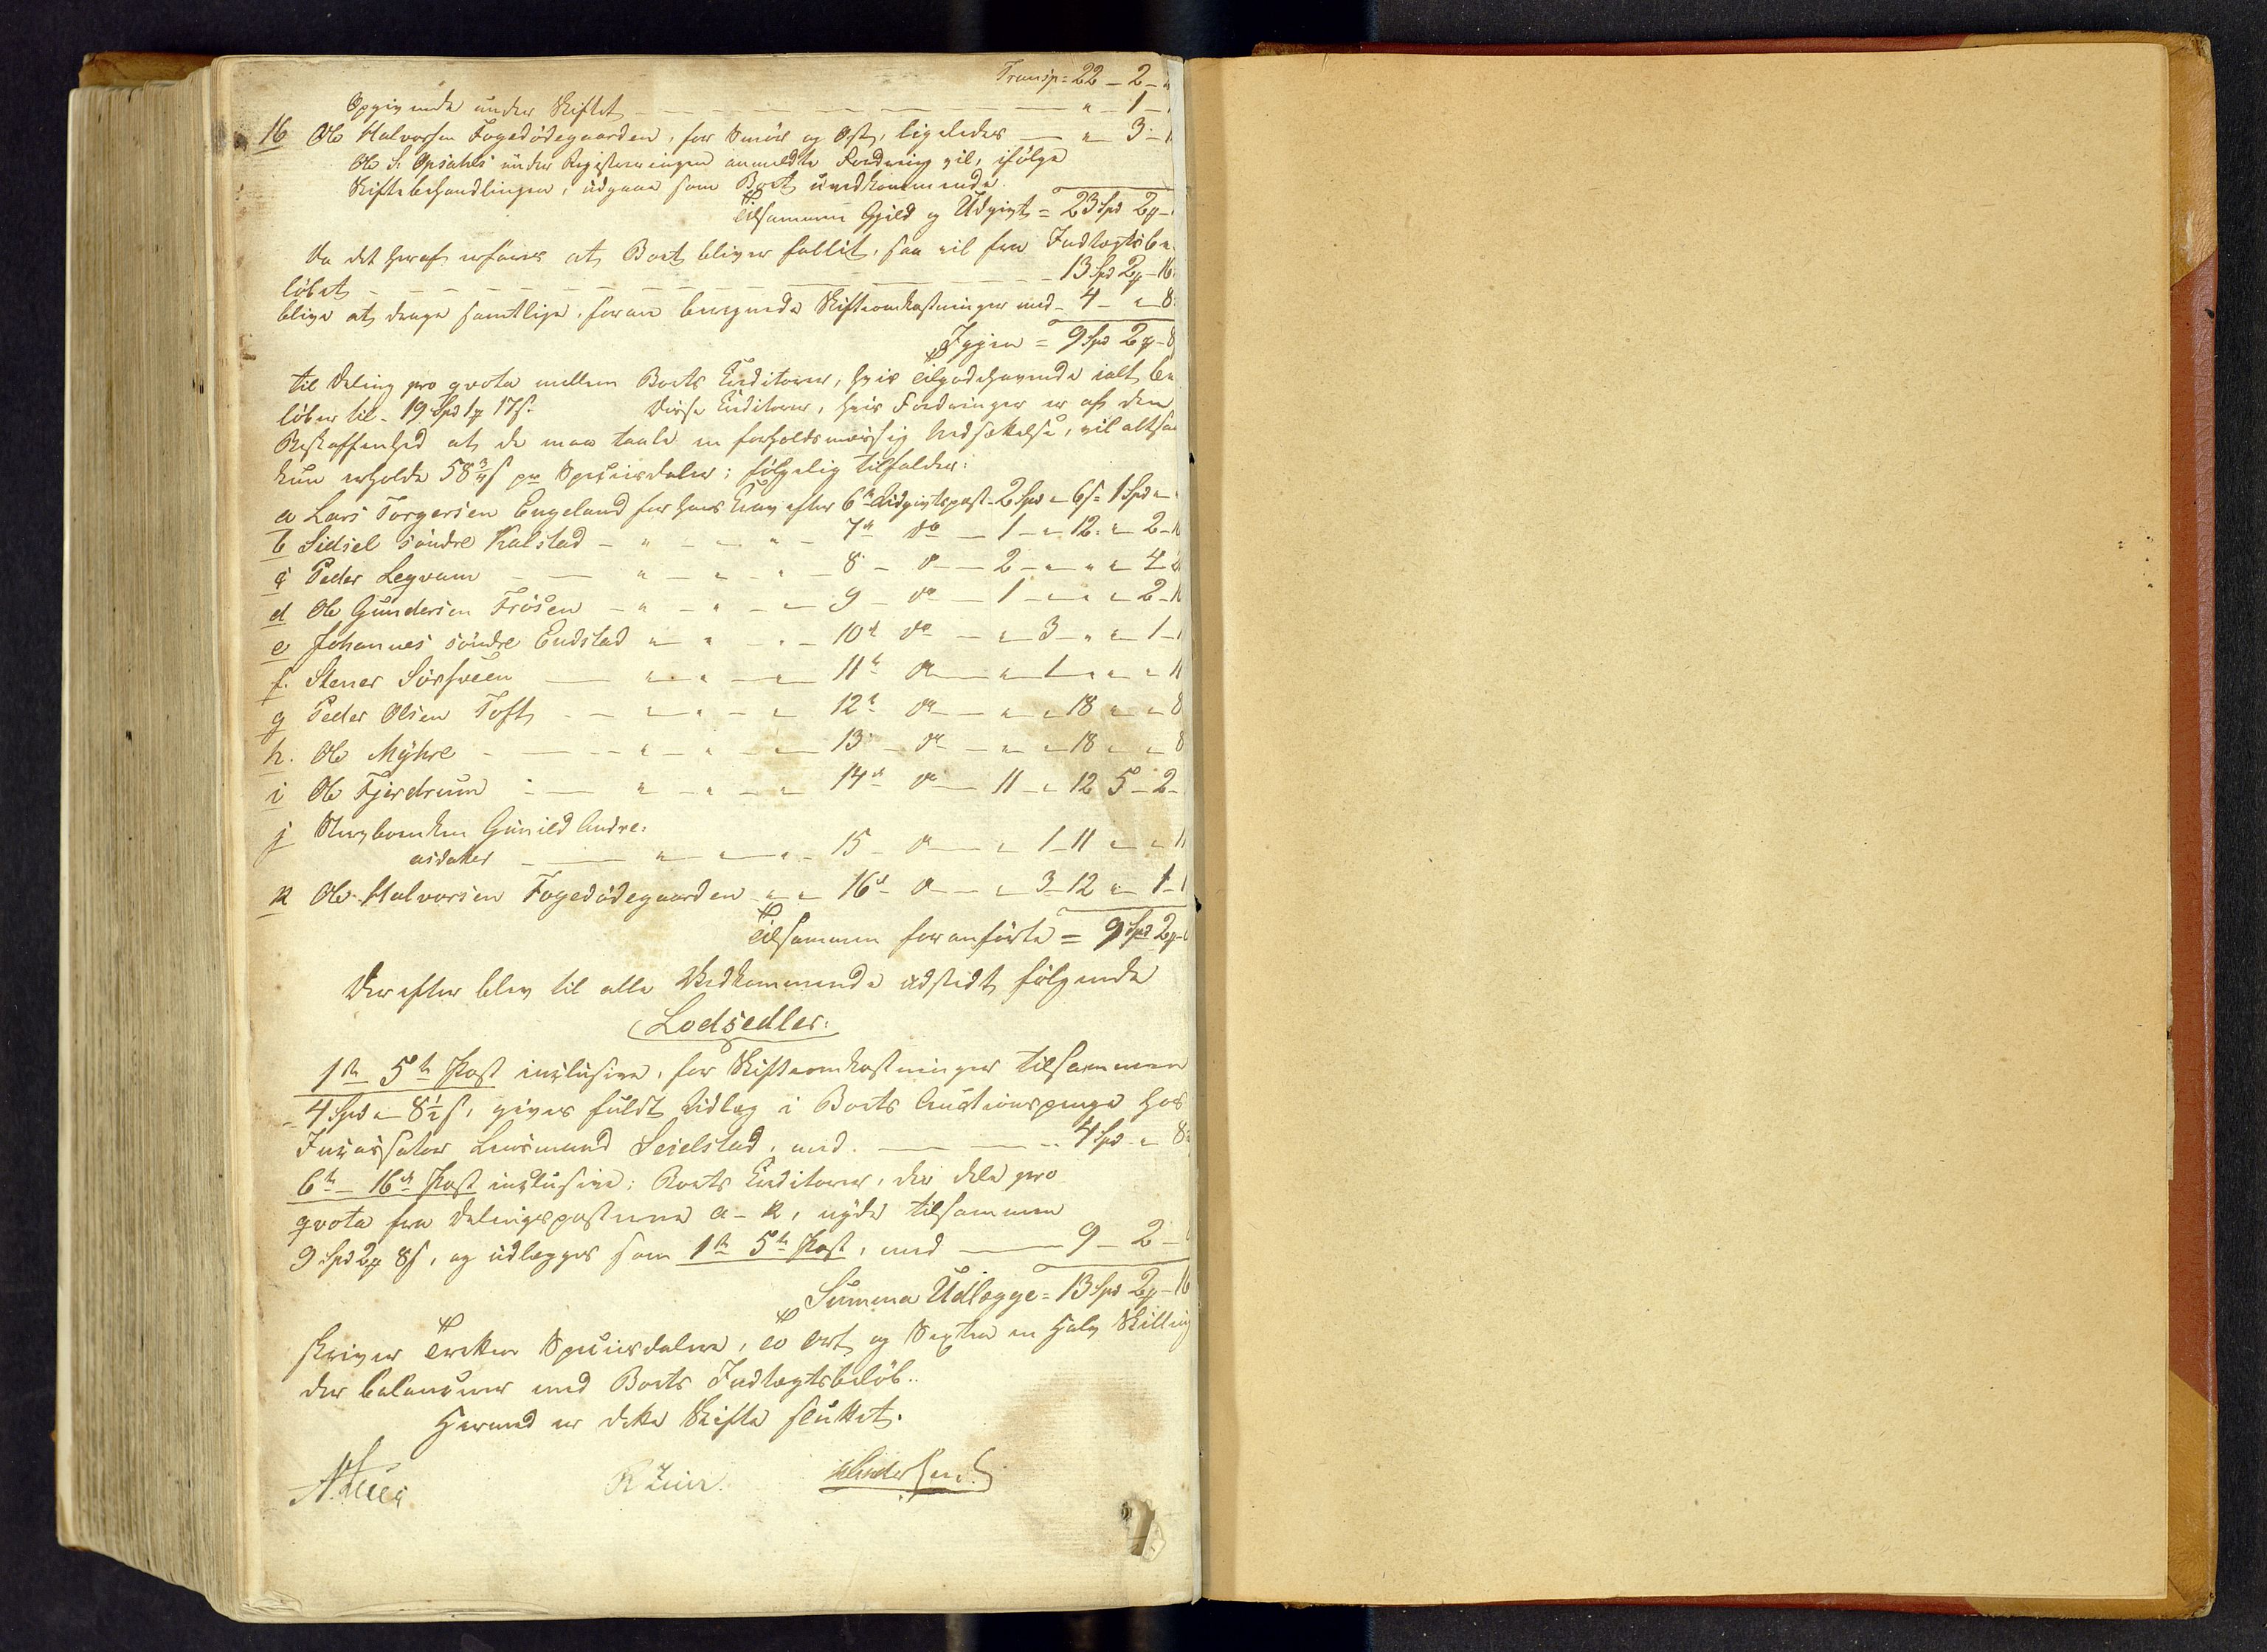 Transp = 22 – 2 –
Opgivende under Skiftet – – – " – 1 –
16 Ole Halvorsen Fogedødegaarden, for Smör og Ost, ligeledes – " – 3 –
Ole S. Opsahls under Registreringen anmeldte Fordring vil, ifölge
Skiftebehandlingen, udgaae som Boet uvedkommende.
Tilsammen Gjeld og Udgivt = 23 Spd 2 –
Da det heraf erfares at Boet bliver fallit, saa vil fra Indtægtsbe-
löbet – – – 13 Spd 2 – 16
blive at drage samtlige, foran beregnede Skifteomkostninger med – 4 – " 8
Igjen = 9 Spd 2 – 8
til Deling pro qvota mellem Boets Creditorer, hvis Tilgodehavende ialt be-
löber til – 19 Spd 1 17 s. Disse Creditorer, hvis Fordringer er af den
Beskaffenhed at de maa taale en forholdsmæssig Nedsættelse, vil altsaa
kun erholde 58 3/4 s pr Speciesdaler; fölgelig tilfalder:
a Lars Torgersen Engeland for hans Krav efter 6te Udgivtspost – 2 Spd " 6 s = 1 Spd "
b Sidsel söndre Kalstad – " – " – 7de do – 1 – " 12 " 2 –
c Peder Legvam – " – " – 8 – do – 2 – " " " 4
d Ole Gundersen Frösen – " – " – 9 – do – 1 – " " " 2 –
e Johannes söndre Endstad " – " – 10de do – " 3 – " " 1 –
f. Stener Sörsveen – " – " – 11te do – " 1 – " " "
g Peder Olsen Toft – " – " – 12te do – " – " 18 " " 8
h. Ole Myhre – " – " – 13 – do – " – " 18 " " 8
i Ole Fjerdrum – " – " – 14de do – 11 – " 12 5 – 2 –
j Gunild Andre-
asdatter – " – " – 15 – do – " 1 – 11 " "
k Ole Halvorsen Fogedødegaarden " " 16de do – " 3 – 12 " 1 –
Tilsammen foranförte = 9 Spd 2 –
Derefter blev til alle Vedkommende udstedt fölgende
Lodsedler:
1te – 5te Post inclusive, for Skifteomkostninger tilsammen
4 Spd " 8 1/2 s, gives fuldt Udlæg i Boets Auctionspenge hos
Incassator Lensmand Seielstad, med – 4 Spd " 8
6te – 16de Post inclusive; Boets Creditorer, der dele pro
qvota fra Delingsposterne a – k, nyde tilsammen
9 Spd 2 8 s, og udlægges som 1te – 5te Post, med – 9 – 2 –
Summa Udlægge = 13 Spd 2 – 16
skriver Tretten Speciesdaler, to Ort og Sexten en halv Skilling
der balancerer med Boets Indtægtsbelöb.
Hermed er dette Skifte sluttet.